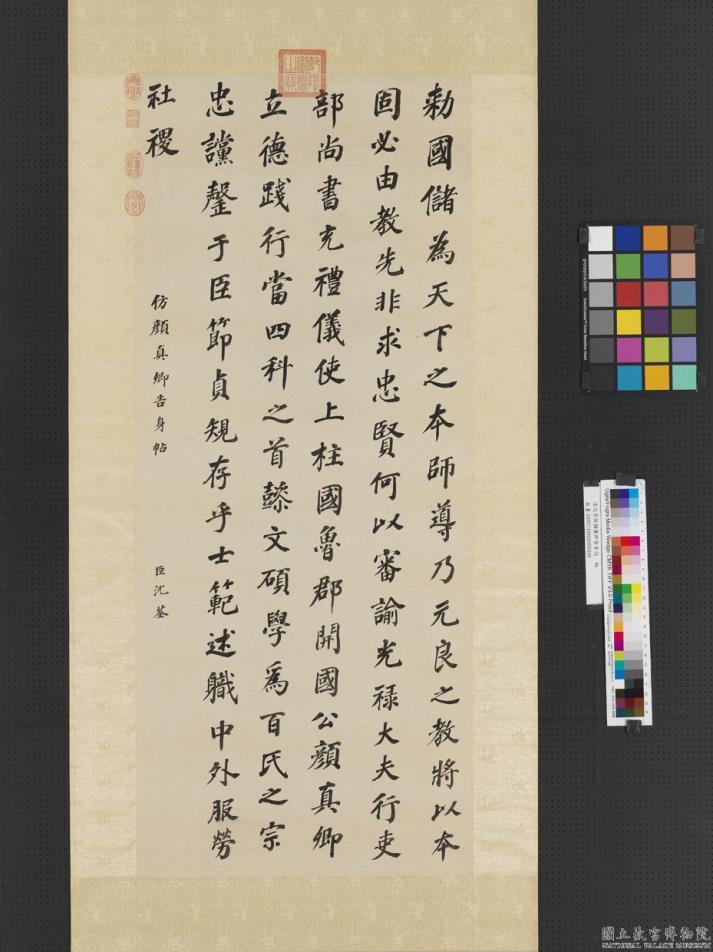 勑國儲為天下之本師導乃元良之教將以本
固必由教先非求忠賢何以審諭光禄大夫行吏
部尚書充禮儀使上柱國魯郡開國公顏真卿
立德踐行當四科之首懿文碩學爲百氏之宗
忠讜罄于臣節貞規存乎士範述職中外服勞
社稷
仿顏真卿告身帖
臣沈荃
國立故宮博物院
NATIONAL PALACE MUSEUM